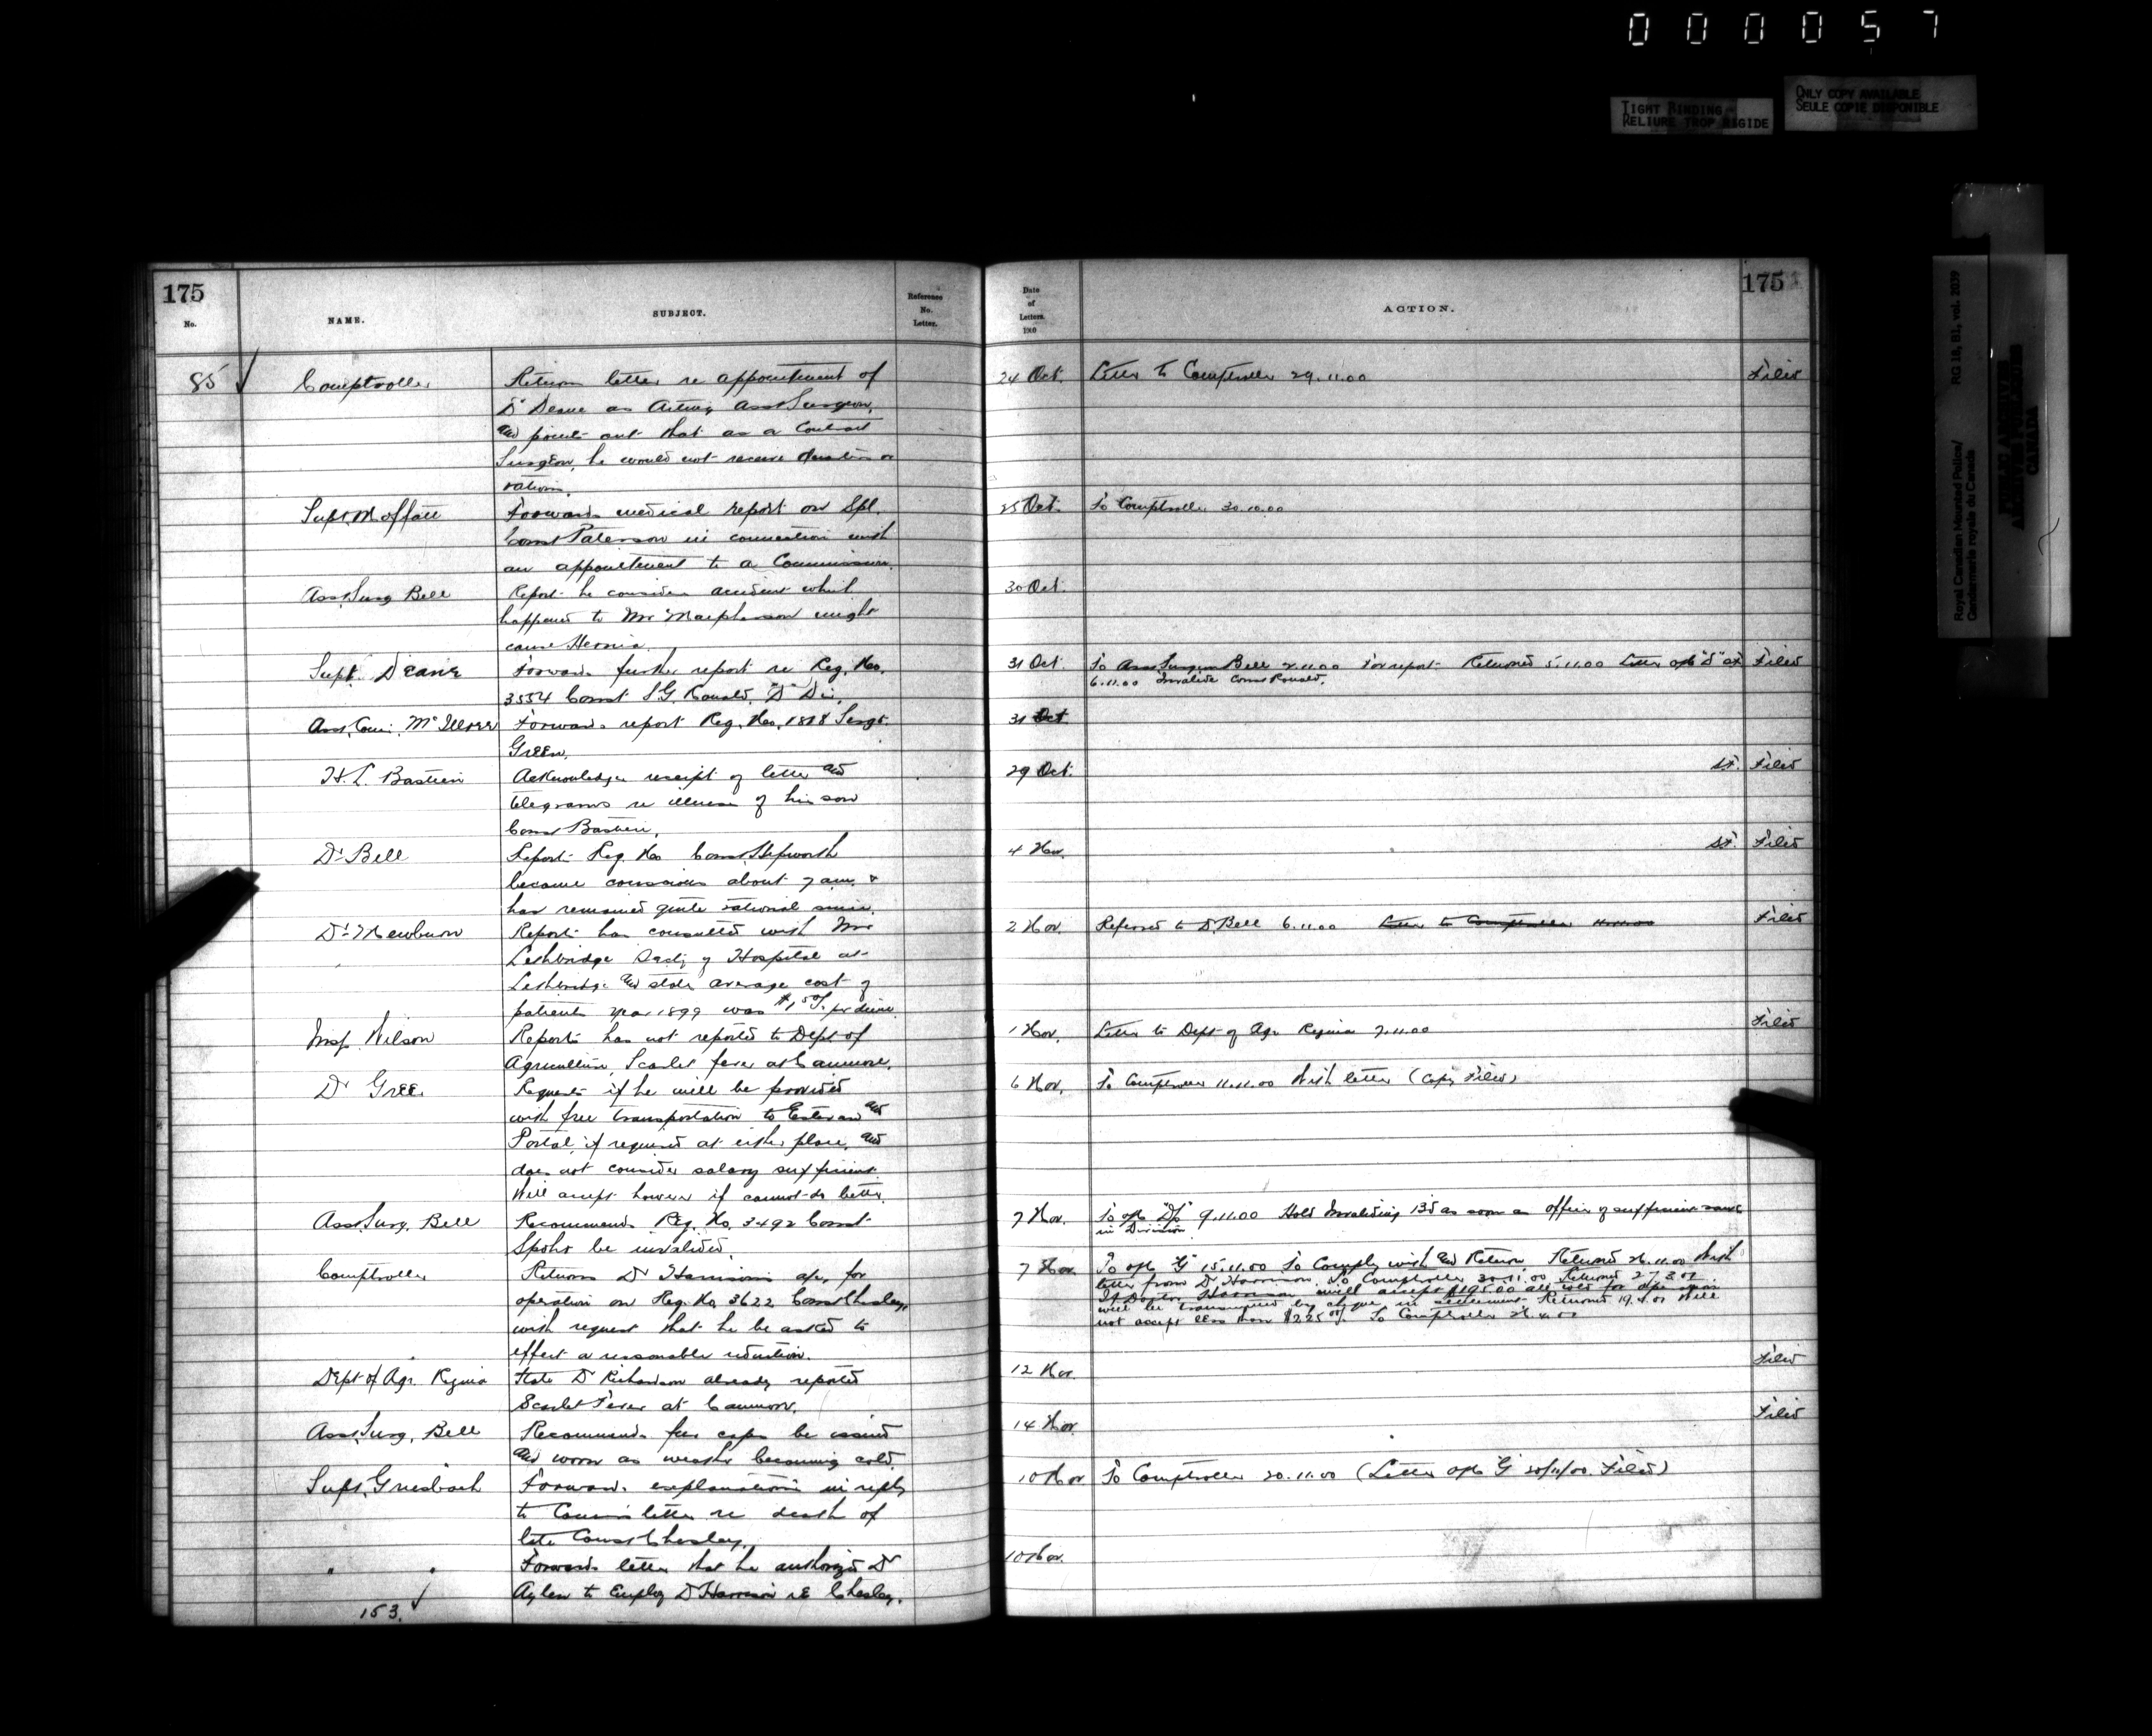 0 0 0 0 5 7
TIGHT BINDING
RELIURE TROP RIGIDE
ONLY COPY AVAILABLE
SEULE COPIE DISPONIBLE
Royal Canadian Mounted Police/
Gendarmerie royale du Canada
RG 18, B1, vol. 2039
PUBLIC ARCHIVES
ARCHIVES PUBLIQUES
CANADA
175
No.
NAME.
SUBJECT.
Reference
No.
Letter.
85
Comptroller
Returns letter re appointment of
Dr Deane as Acting Asst Surgeon,
and points out that as a Contract
Surgeon, he would not receive or
rations.
Supt. Moffatt
Forwards medical report on Spl.
Const Paterson in connection with
an appointment to a Commission.
Asst. Surg Bell
Reports he considers accident which
happened to Mr Macpherson might
cause Hernia.
Supt. Deane
Forwards further report re Reg. No.
3554 Const S.G. Ronald, "D" Div.
Asst. Com. McIllree
Forwards report Reg. No. 1818 Sergt.
Green.
H. L. Bastien
Acknowledges receipt of letter and
telegrams re illness of his son
Const Bastien.
Dr Bell
Reports Reg. No Const Hepworth
became conscious about 7 am. &
has remained quite rational since.
Dr Mewburn
Reports has consulted with Mr
Lethbridge Secty of Hospital at
Lethbridge and states average cost of
patients year 1899 was per diem.
Insp. Wilson
Reports has not reported to Dept of
Agriculture, Scarlet fever at Canmore.
Dr Gree
Requests if he will be provided
with free transportation to Estevan and
Portal, if required at either place, and
does not consider salary sufficient.
Will accept however if cannot do better.
Asst. Surg. Bell
Recommends Reg. No. 3492 Const.
Spohr be invalided.
Comptroller
Returns Dr Harrison's a/c, for
operation on Reg. No. 3622 Const Chesley,
with request that he be asked to
effect a reasonable reduction.
Dept of Agr. Regina
State Dr Richardson already reported
Scarlet Fever at Canmore.
Asst. Surg. Bell
Recommends fur caps be issued
and worn as weather becoming cold.
Supt. Griesbach
Forwards explanations in reply
to Comm's letter re death of
late Const Chesley.
" "
Forwards letter that he authorized Dr
Aylen to Employ Dr Harrison re Chesley.
153.
175
Date
of
Letters.
1900
ACTION.
24 Oct. Letter to Comptroller 29.11.00 Filed
25 Oct. To Comptroller 30.10.00
30 Oct.
31 Oct. To Asst Surgeon Bell 2.11.00 For report Returned 5.11.00 Letter o/c "D" at Filed
6.11.00 Invalids Const Ronald.
31 Oct
29 Oct. Filed
4 Nov. Filed
2 Nov. Referred to Dr Bell 6.11.00 Letter to Comptroller 11.11.00 Filed
1 Nov. Letter to Dept of Agr Regina 7.11.00 Filed
6 Nov. To Comptroller 11.11.00 With letter (Copy Filed)
7 Nov. To o/c "Dp" 9.11.00 Hold Invaliding Bd as soon as officers of sufficient
in Division
7 Nov. To o/c "G" 15.11.00 To Comply with and Return. Returned 26.11.00 With
letter from Dr Harrison. To Comptroller 30.11.00 Returned 27.3.01
If Doctor Harrison will accept $195.00 all told for operation
will be transmitted by cheque in settlement. Returned 19.4.01 Will
not accept less than $225 To Comptroller 26.4.01
12 Nov. Filed
14 Nov. Filed
10 Nov To Comptroller 20.11.00 (Letter o/c G 20/11/00. Filed)
10 Nov.